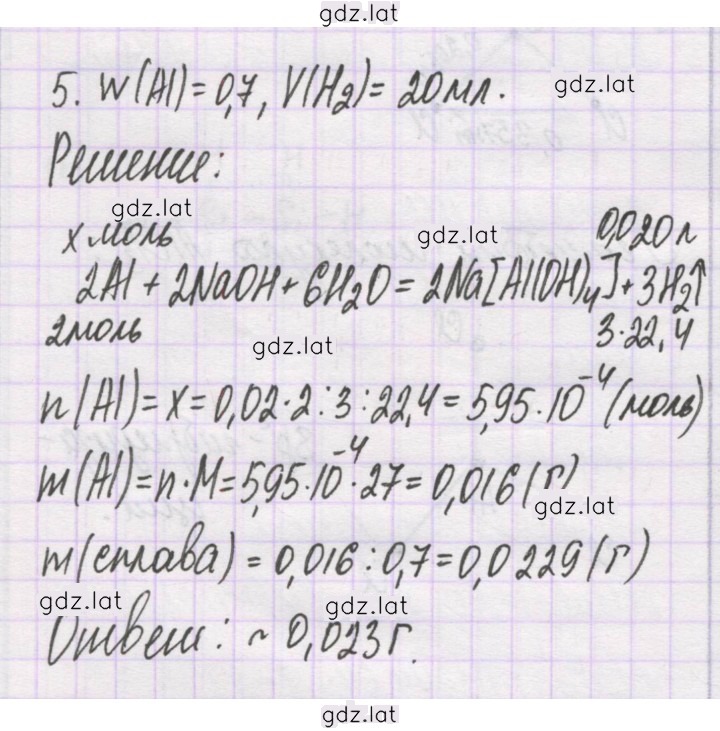 gdz.lat
5. W(Al) = 0,7, V(H₂) = 20 мл.
gdz.lat
Решение:
gdz.lat
x моль
gdz.lat
0,020 л
2Al + 2NaOH + 6H₂O = 2Na[Al(OH)₄] + 3H₂↑
2моль
gdz.lat
3·22,4
n(Al) = x = 0,02·2:3:22,4 = 5,95·10⁻⁴ (моль)
m(Al) = n·M = 5,95·10⁻⁴·27 = 0,016 (г)
gdz.lat
m(сплава) = 0,016:0,7 = 0,0229 (г)
gdz.lat
gdz.lat
Ответ: ~ 0,023 г.
gdz.lat